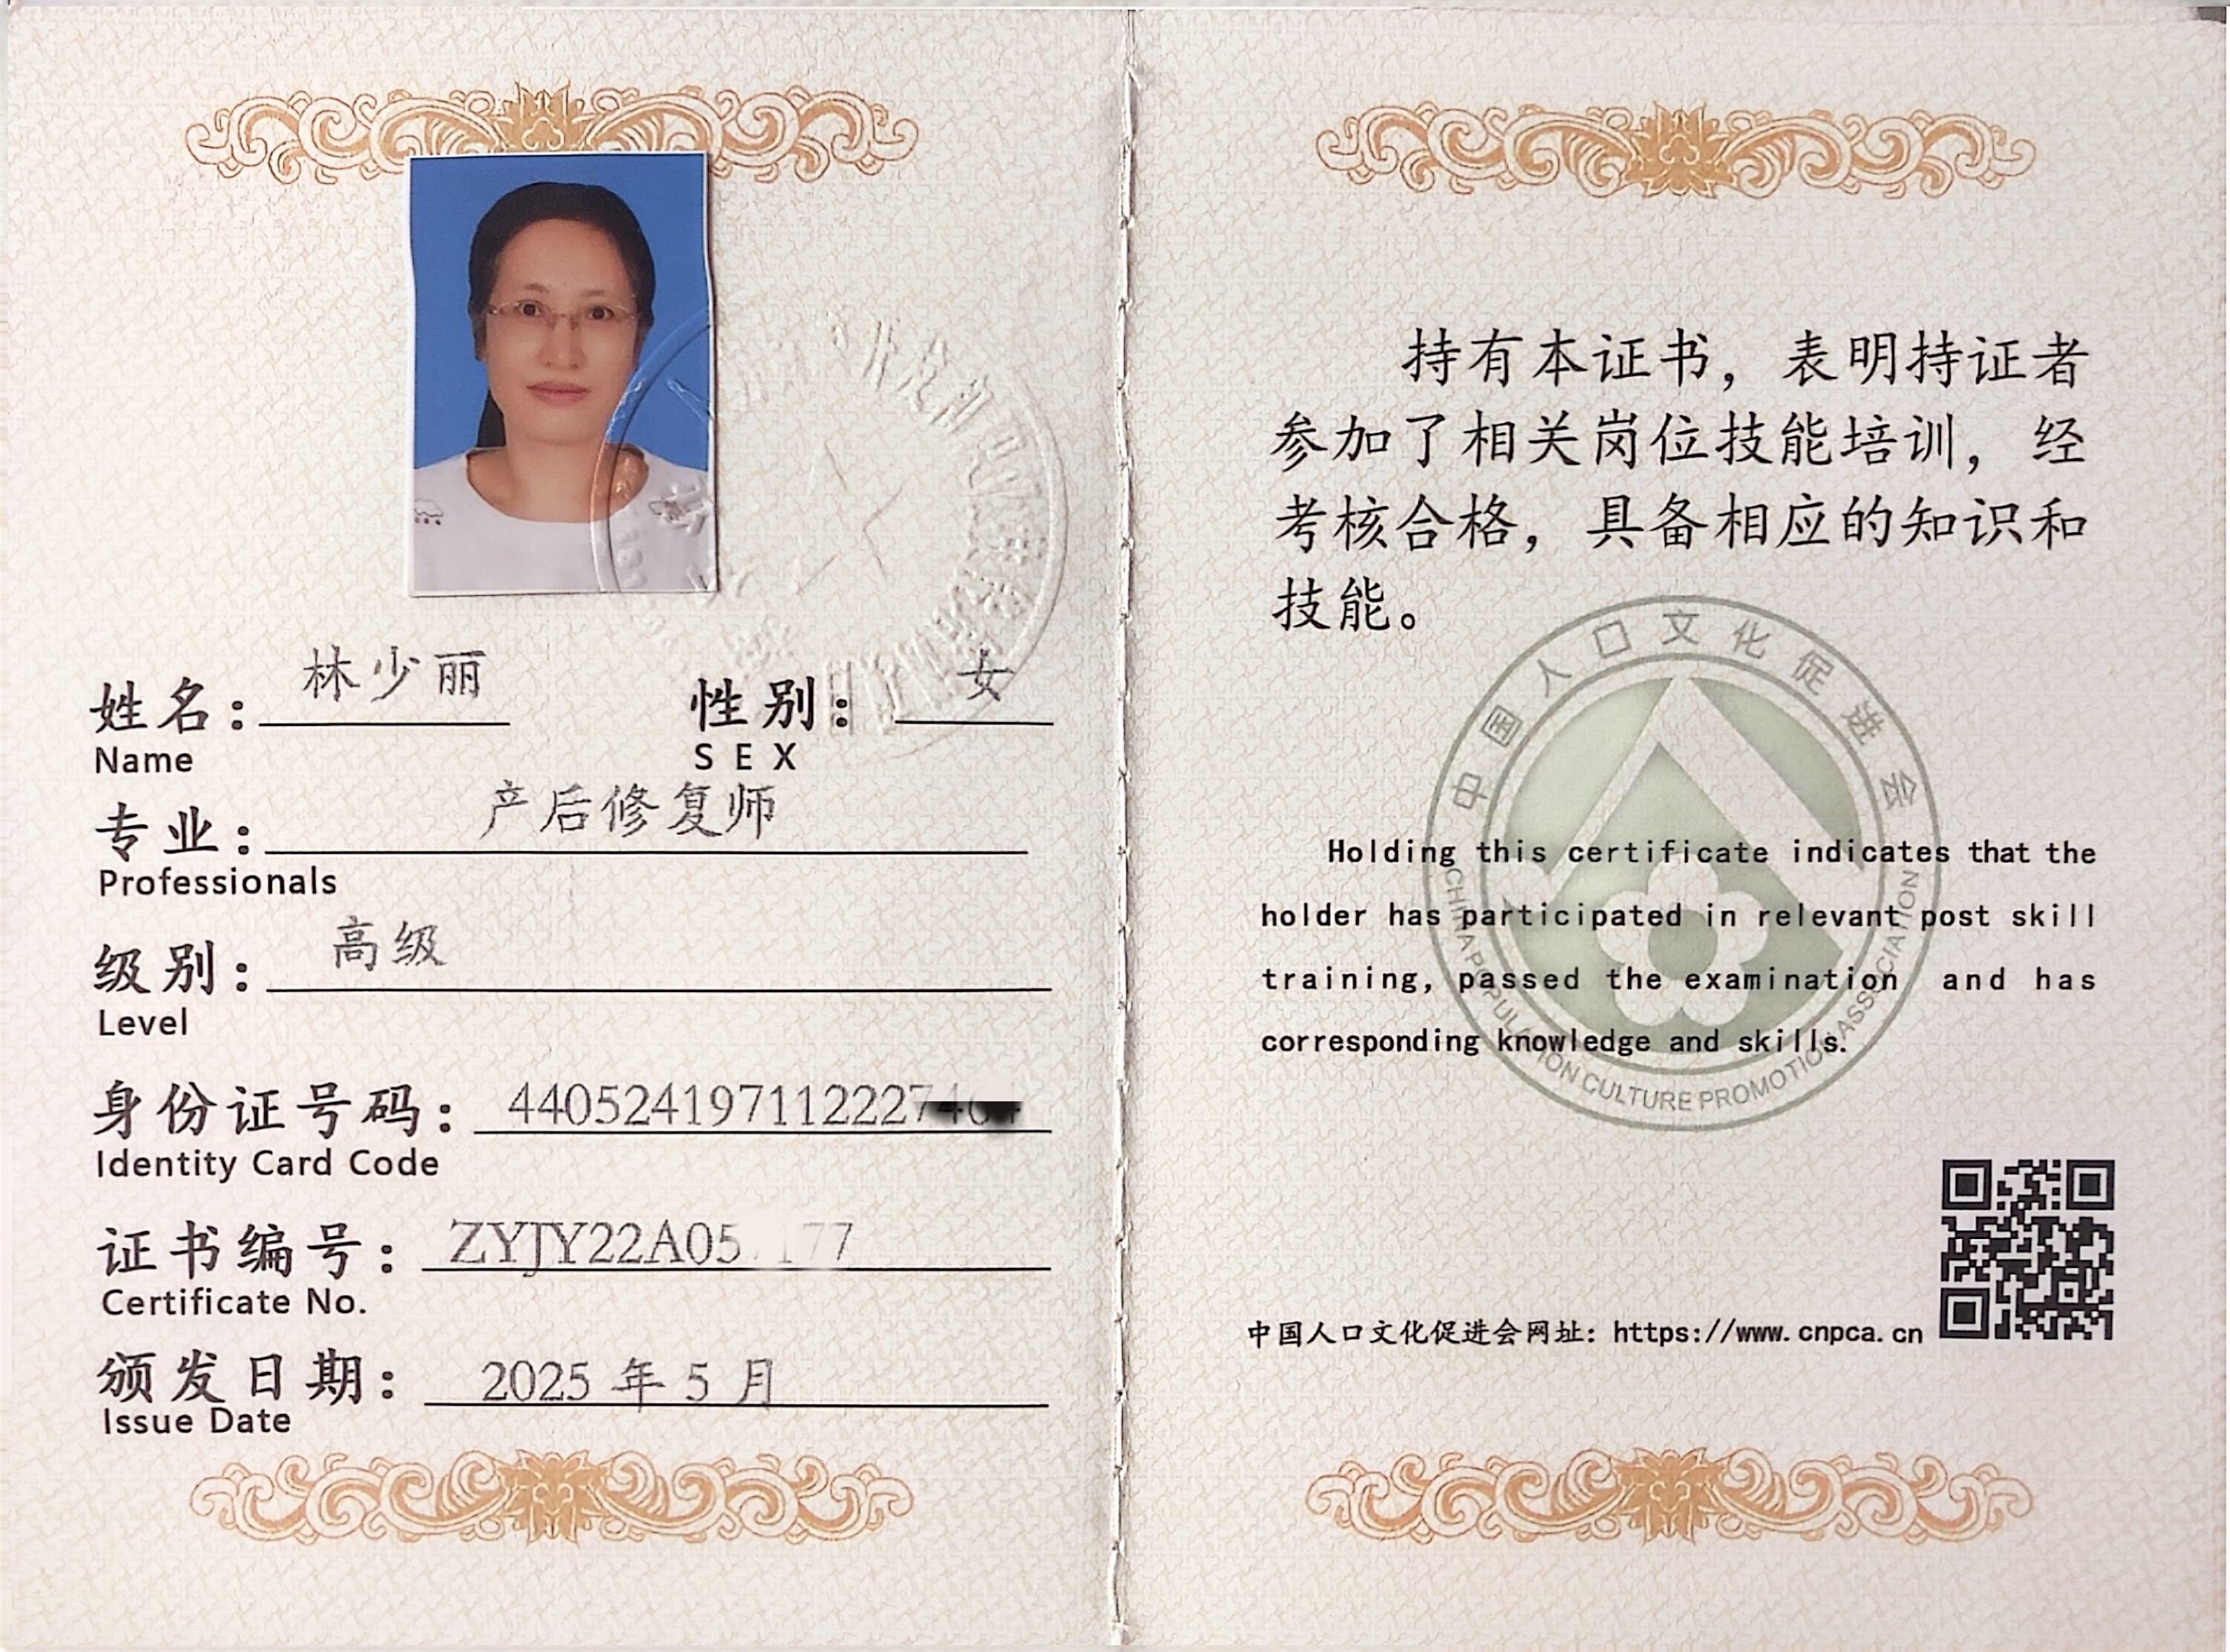 姓名：林少丽 性别：女
Name SEX
专业：产后修复师
Professionals
级别：高级
Level
身份证号码：440524197112227
Identity Card Code
证书编号：ZYJY22A05 177
Certificate No.
颁发日期：2025 年 5 月
Issue Date
持有本证书，表明持证者
参加了相关岗位技能培训，经
考核合格，具备相应的知识和
技能。
中国人口文化促进会
CHINA POPULATION CULTURE PROMOTION ASSOCIATION
Holding this certificate indicates that the
holder has participated in relevant post skill
training, passed the examination and has
corresponding knowledge and skills.
中国人口文化促进会网址：https://www.cnpca.cn